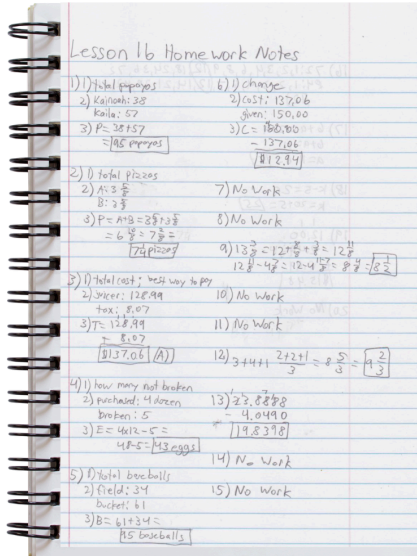 Lesson 16 Homework Notes
1) 1) total papayas
2) Kainoah: 38
Kaila: 57
3) P = 38+57
= 95 papayas
2) 1) total pizzas
2) A: 3 5/8
B: 3 5/8
3) P = A+B = 3 5/8 + 3 5/8
= 6 10/8 = 7 2/8 =
7 1/4 pizzas
3) 1) total cost; best way to pay
2) Juicer: 128.99
tax: 8.07
3) T = 128.99
+ 8.07
$137.06 (A)
4) 1) how many not broken
2) purchased: 4 dozen
broken: 5
3) E = 4x12-5 =
48-5 = 43 eggs
5) 1) total baseballs
2) field: 34
bucket: 61
3) B = 61+34 =
95 baseballs
6) 1) change
2) cost: 137.06
given: 150.00
3) C = 150.00
- 137.06
$12.94
7) No Work
8) No Work
9) 13 3/8 = 12 + 8/8 + 3/8 = 12 11/8
12 11/8 - 4 7/8 = 12-4 11-7/8 = 8 4/8 = 8 1/2
10) No Work
11) No Work
12) 3+4+1 2+2+1/3 = 8 5/3 = 9 2/3
13) 23.8888
- 4.0490
19.8398
14) No Work
15) No Work